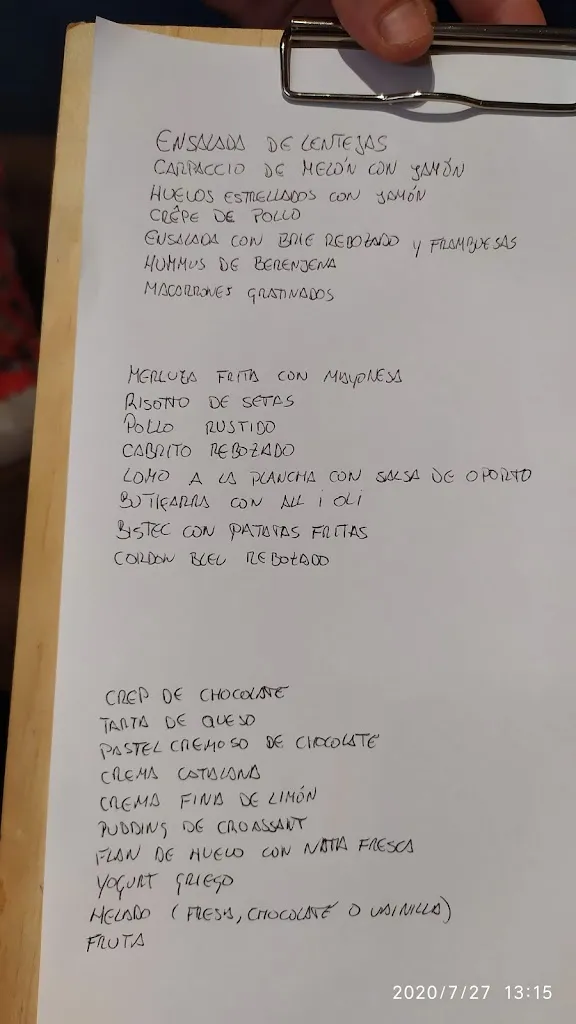 ENSALADA DE LENTEJAS
CARPACCIO DE MELÓN CON JAMÓN
HUEVOS ESTRELLADOS CON JAMÓN
CRÊPE DE POLLO
ENSALADA CON BRIE REBOZADO y FRAMBUESAS
HUMMUS DE BERENJENA
MACARRONES GRATINADOS
MERLUZA FRITA CON MAYONESA
RISOTTO DE SETAS
POLLO RUSTIDO
CABRITO REBOZADO
LOMO A LA PLANCHA CON SALSA DE OPORTO
BUTIFARRA CON ALL i OLI
BISTEC CON PATATAS FRITAS
CORDON BLEU REBOZADO
CREP DE CHOCOLATE
TARTA DE QUESO
PASTEL CREMOSO DE CHOCOLATE
CREMA CATALANA
CREMA FINA DE LIMÓN
PUDDING DE CROASSANT
FLAN DE HUEVO CON NATA FRESCA
YOGURT GRIEGO
HELADO (FRESA, CHOCOLATE O VAINILLA)
FRUTA
2020/7/27 13:15